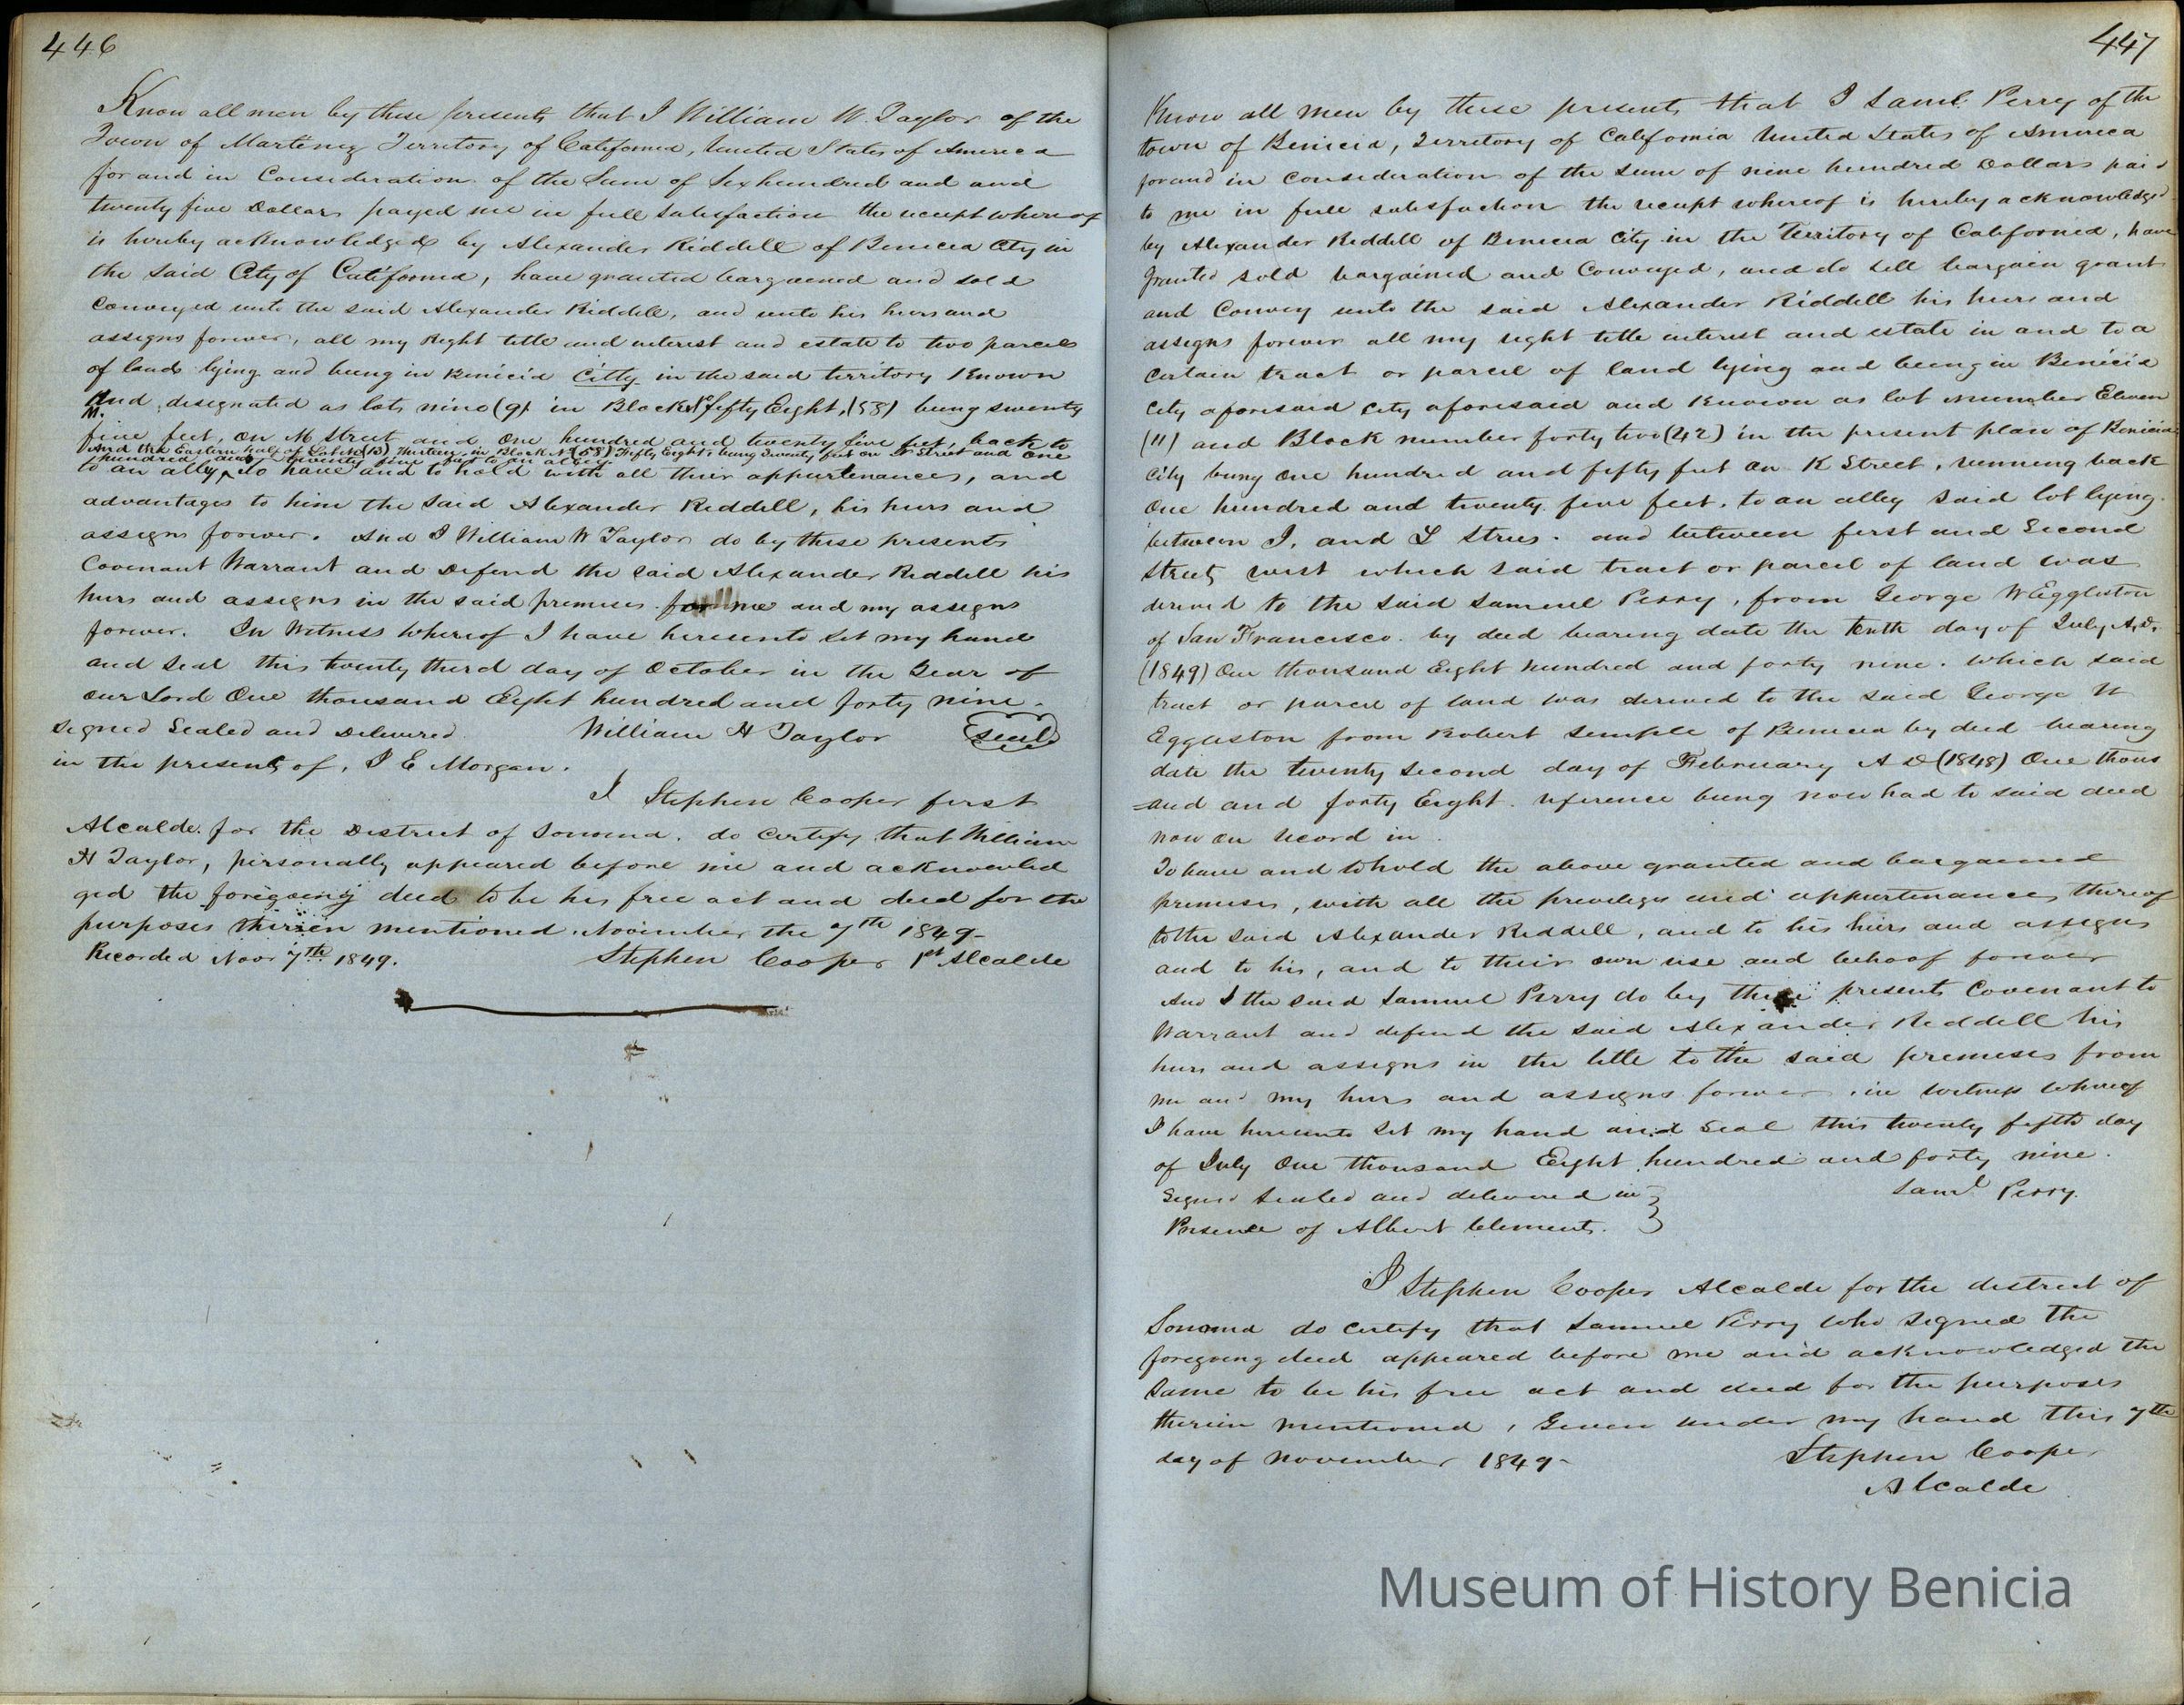 446
Know all men by these presents that I William W. Taylor of the
Town of Martinez Territory of California, United States of America
for and in Consideration of the Sum of Six hundred and and
twenty five Dollars payed me in full satisfaction the receipt whereof
is hereby acknowledged by Alexander Riddell of Benicia City in
the said City of California, have granted bargained and sold
conveyed unto the said Alexander Riddell, and unto his heirs and
assigns forever, all my Right title and interest and estate to two parcels
of land lying and being in Benicia Citty in the said territory Known
And designated as lots nine (9) in Block No fifty Eight, (58) being twenty
five feet, on M Street and One hundred and twenty five feet, back to
And the Eastern half of Lot No (13) Thirteen, in Block No (58) Fifty Eight, being Twenty feet on Street and One
hundred and twenty five feet to an alley
to an ally, to have and to hold with all their appurtenances, and
advantages to him the said Alexander Riddell, his heirs and
assigns forever. And I William W Taylor do by these presents
Covenant Warrant and Defend the said Alexander Riddell his
heirs and assigns in the said premises for me and my assigns
forever. In Witness Whereof I have hereunto set my hand
and Seal this twenty third day of October in the Year of
our Lord One thousand Eight hundred and forty nine.
Signed Sealed and Delivered William H Taylor Seal
in the presents of, I E Morgan.
I Stephen Cooper first
Alcalde for the District of Sonoma. do certify that William
H Taylor, personally appeared before me and acknowled
ged the foregoing deed to be his free act and deed for the
purposes therein mentioned. November the 7th 1849-
Recorded Nov 7th 1849. Stephen Cooper 1st Alcalde
447
Know all men by these presents that I Saml. Perry of the
town of Benicia, Territory of California United States of America
for and in consideration of the sum of nine hundred Dollars paid
to me in full satisfaction the receipt whereof is hereby acknowledged
by Alexander Riddell of Benicia City in the Territory of California, have
granted sold bargained and Conveyed, and do sell bargain grant
and Convey unto the said Alexander Riddell his heirs and
assigns forever all my right title interest and estate in and to a
Certain tract or parcel of land lying and being in Benicia
City aforesaid City aforesaid and Known as lot number Eleven
(11) and Block number forty two (42) in the present plan of Benicia
City being One hundred and fifty feet on K Street, running back
One hundred and twenty five feet. to an alley said lot lying
between I, and L Strees. and between first and Second
Streets west which said tract or parcel of land was
derived to the said Samuel Perry, from George W Eggleston
of San Francisco. by deed bearing date the tenth day of July A,D,
(1849) One thousand Eight hundred and forty nine. Which said
tract or parcel of land was derived to the said George W
Eggleston from Robert Semple of Benicia by deed bearing
date the twenty Second day of February A D (1848) One thous
=and and forty Eight. reference being now had to said deed
now on record in
To have and to hold the above granted and bargained
premises, with all the priveleges and appurtenances thereof
to the said Alexander Riddell, and to his heirs and assigns
and to his, and to their own use and behoof forever
And I the said Samuel Perry do by these presents Covenant to
Warrant and defend the said Alexander Riddell his
heirs and assigns in the title to the said premises from
me and my heirs and assigns forever. in witness whereof
I have hereunto Set my hand and Seal this twenty fifth day
of July One thousand Eight hundred and forty nine.
Signed Sealed and delivered in Saml Perry.
Presence of Albert Clements.
I Stephen Cooper Alcalde for the district of
Sonoma do certify that Samuel Perry who signed the
foregoing deed appeared before me and acknowledged the
Same to be his free act and deed for the purposes
therein mentioned, Given under my hand this 7th
day of November 1849- Stephen Cooper
Alcalde
Museum of History Benicia